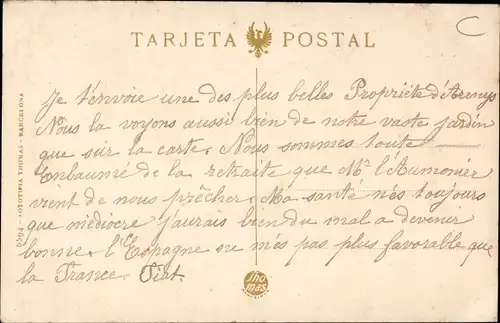 C
TARJETA POSTAL
Je t'envoie une des plus belles Propriété d'Arenys
Nous la voyons aussi bien de notre vaste jardin
que sur la carte. Nous sommes toute
embaumé de la retraite que Mr l'Aumonier
vient de nous prêcher. Ma santé n'és toujours
que médiocre j'aurais bien du mal a devenir
bonne. l'Espagne ne m'es pas plus favorable que
la France. Fiat.
6594 - FOTOTIPIA THOMAS - BARCELONA
Tho
mas